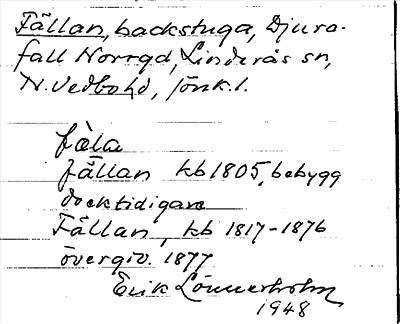 Fållan, backstuga, Djura-
fall Norrgd, Linderås sn,
N. Vedbo hd, Jönk. l.
fåla
fållan kb 1805, bebygg
dock tidigare
Fållan, kb 1817-1876
övergiv. 1877
Erik Lönnerholm
1948